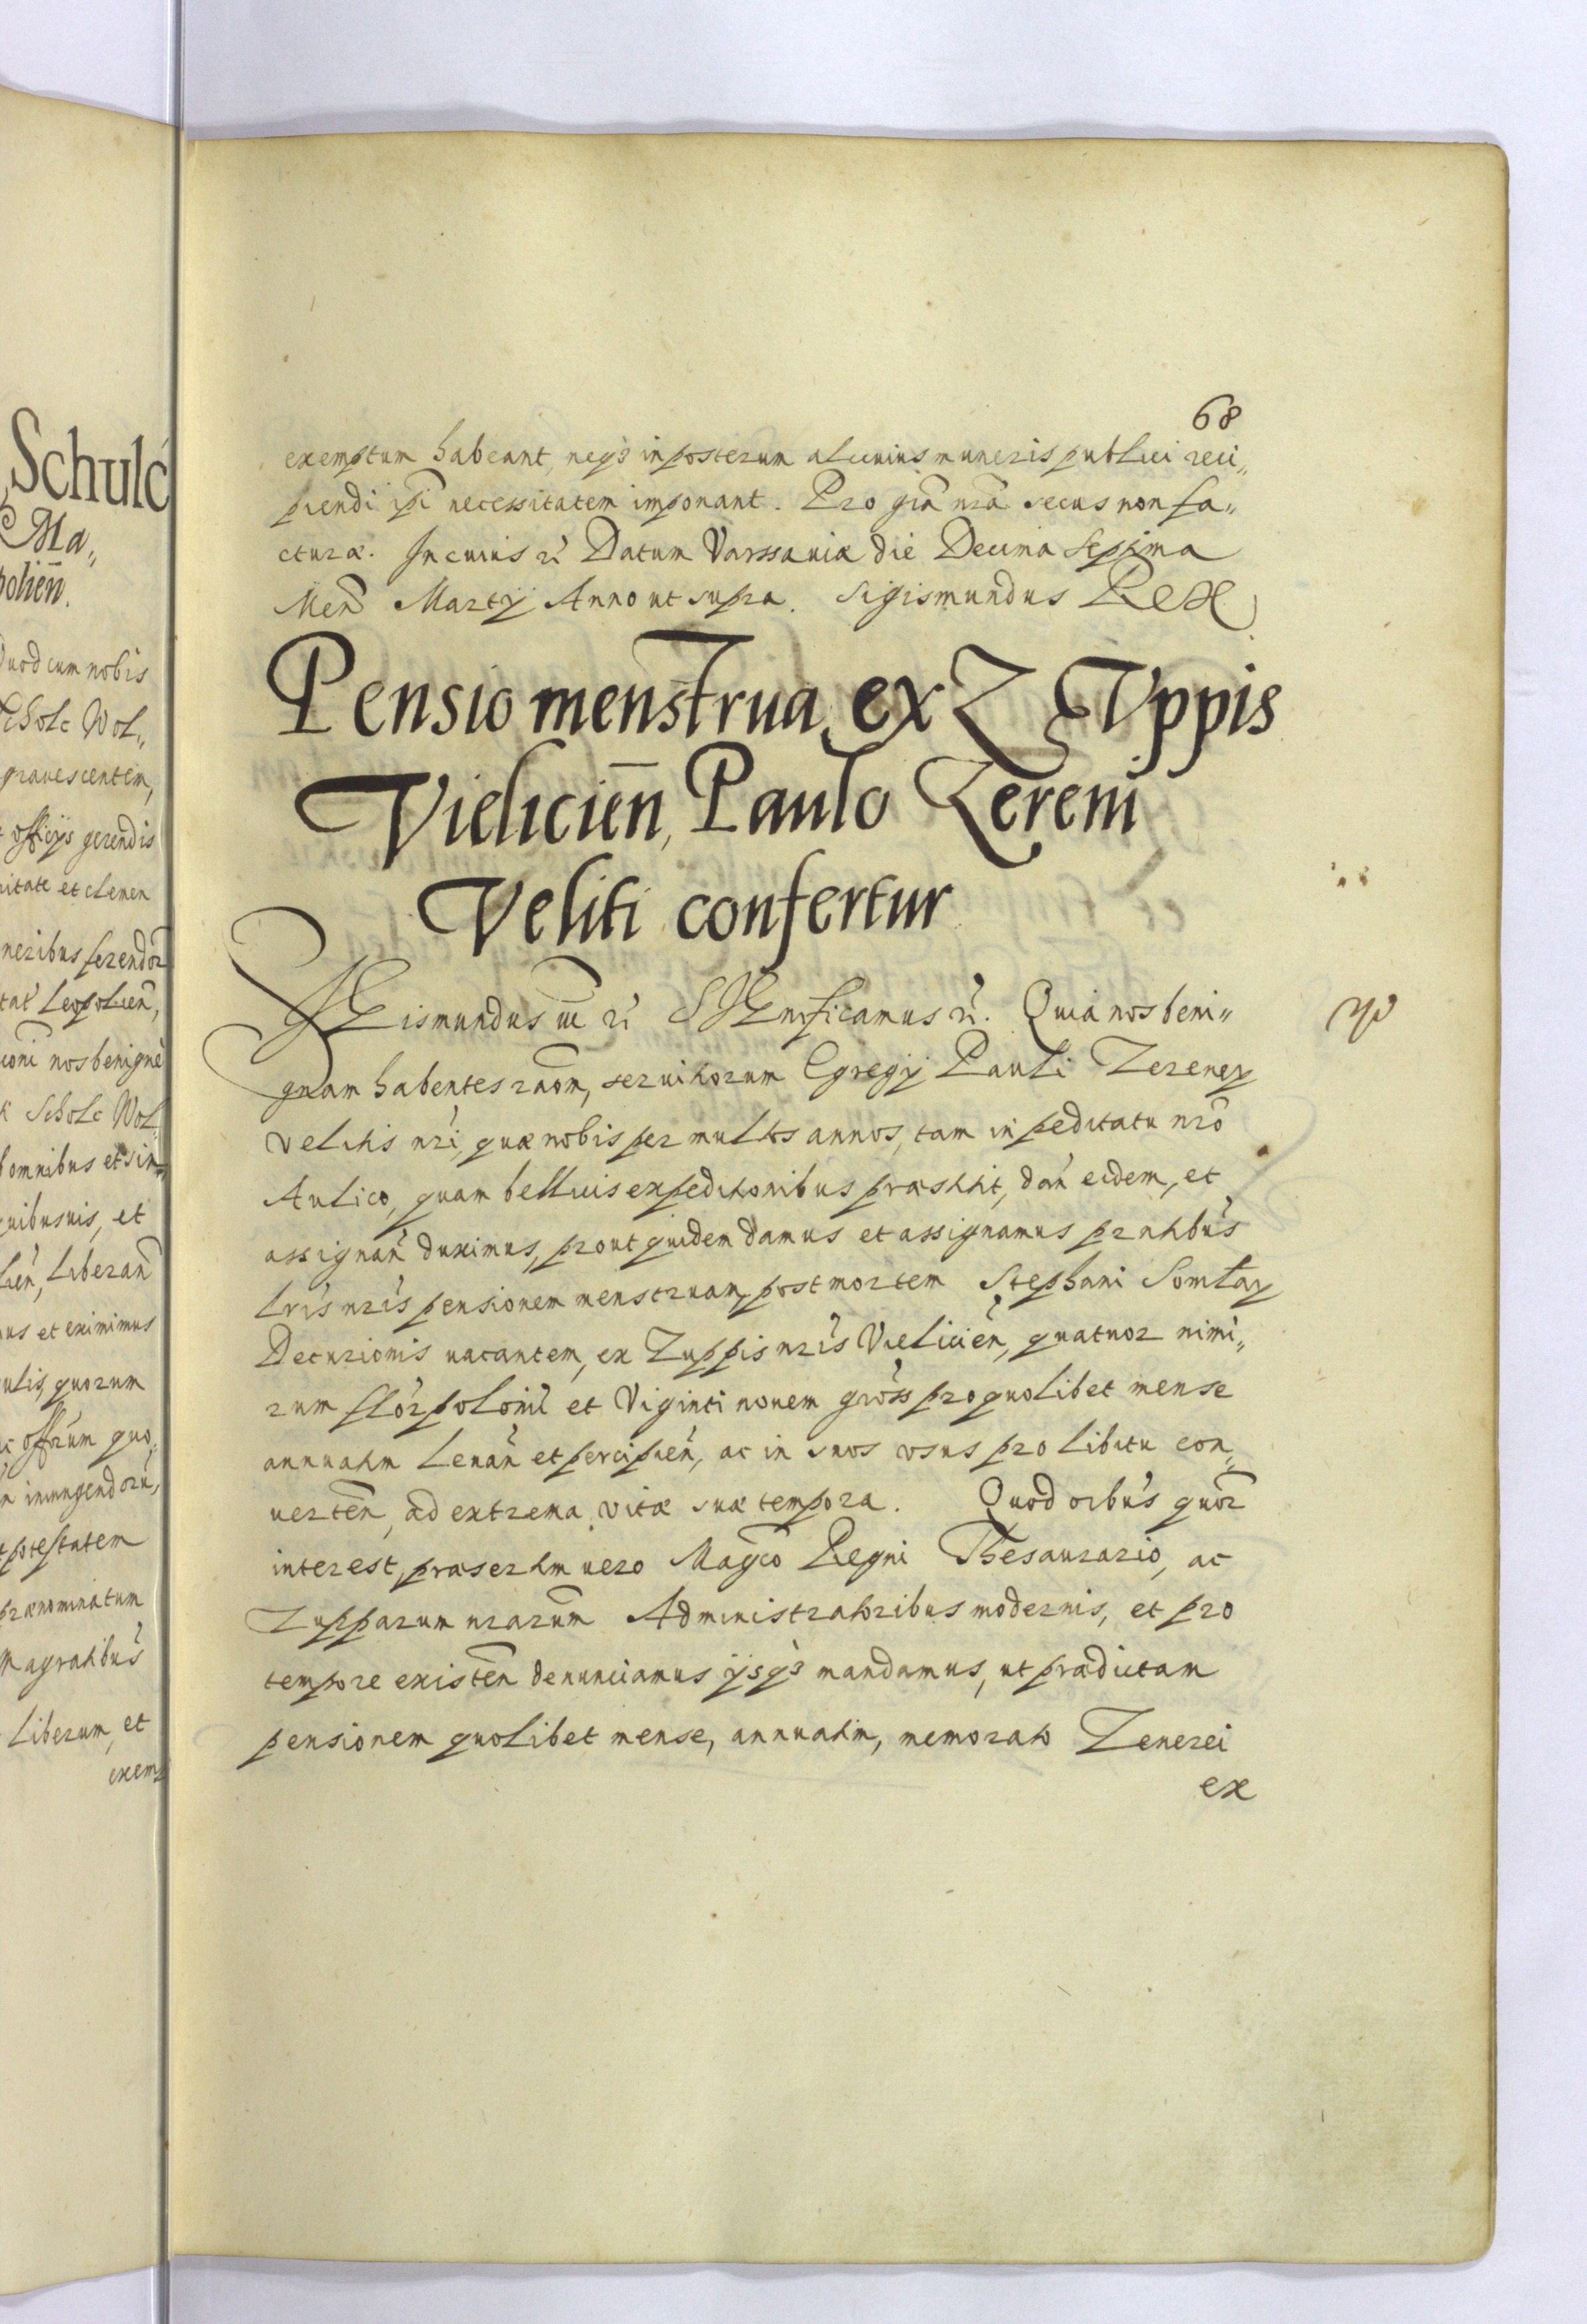 Schulc
Ma„
polien̄.
Quod cum nobis
Scholc Wol„
gravescentem,
officijs gerendis
nitate et clemen
neribus ferendor̃
Leopolien̄,
nos benignè
Scholc Wol„
omnibus et sin„
quibusuis, et
Liberan̄
us et eximimus
ulis, quorum
quo„
potestatem
prænominatum
Liberum, et
exem„
68
exemptum habeant, neq́3 in posterum alicuius muneris publici reci„
piendi ip̄i necessitatem imponant. Pro gr̄a nr̄a secus non fa„
cturæ. In cuius rì Datum Varssauiæ die Decima Septima
Men̄ Martij Anno ut supra. Sigismundus Rex
Pensio menstrua ex Z Vppis
Vielicien̄, Paulo Zereni
Veliti confertur
SIGismundus iiî rì SIGnificamus rì. Quia nos beni„
gnam habentes rãom, seruitiorum Egregij Pauli Zereney
velitis nr̀i, quæ nobis per multos annos, tam in peditatu nr̃o
Aulico, quam bellicis expeditionibus præstitit, dan̄ eidem, et
assignan̄ duximus, prout quidem damus et assignamus pr̃ntibùs
Lr̀is nr̀is pensionem menstruam, post mortem Stephani Somłay
Decurionis uacantem, ex Zuppis nr̀is Vielicien̄, quatuor nimi„
rum flór polonìl et Viginti nouem gròss pro quolibet mense
annuatim leuan̄ et percipien̄, ac in suos vsus pro libitu con„
uerten̄, ad extrema vitæ suæ tempora. Quod oĩbùs quor̃
interest, præsertim uero Mag̃co Regni Thesaurario, ac
Zupparum nr̃arum Administratoribus modernis, et pro
tempore existen̄ denunciamus ijsq́3 mandamus, ut prædictam
pensionem quolibet mense, annuatim, memorato Zenerei
ex